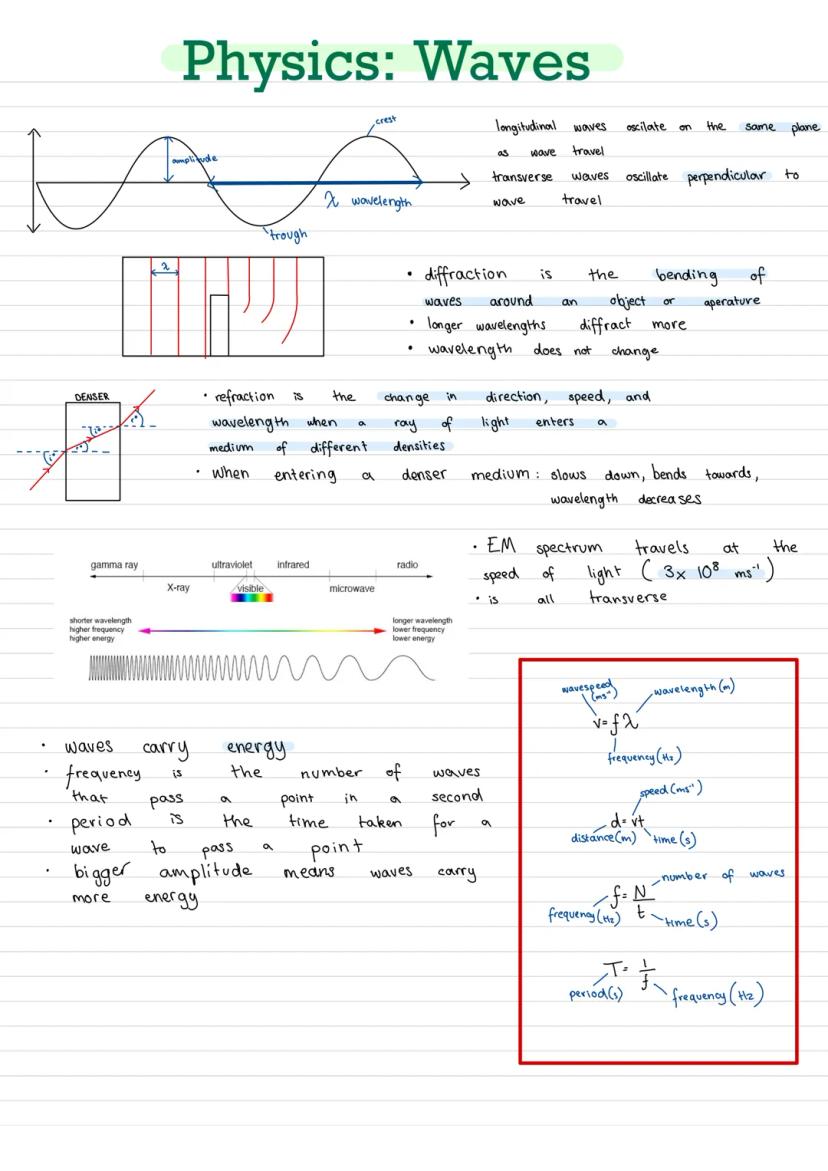 Physics: Waves
crest
amplitude
λ wavelength
trough
longitudinal waves oscilate on the same plane
as wave travel
transverse waves oscillate perpendicular to
wave travel
λ
• diffraction is the bending of
waves around an object or aperature
• longer wavelengths diffract more
• wavelength does not change
DENSER
i°
r°
i°
r°
• refraction is the change in direction, speed, and
wavelength when a ray of light enters a
medium of different densities
• when entering a denser medium: slows down, bends towards,
wavelength decreases
gamma ray ultraviolet infrared radio
X-ray visible microwave
shorter wavelength
higher frequency
higher energy
longer wavelength
lower frequency
lower energy
• EM spectrum travels at the
speed of light (3x 10⁸ ms⁻¹)
• is all transverse
• waves carry energy
• frequency is the number of waves
that pass a point in a second
• period is the time taken for a
wave to pass a point
• bigger amplitude means waves carry
more energy
wavespeed (ms⁻¹)
wavelength (m)
v=fλ
frequency (Hz)
speed (ms⁻¹)
d=vt
distance (m) time (s)
number of waves
f= N/t
frequency (Hz) time (s)
T= 1/f
period (s) frequency (Hz)